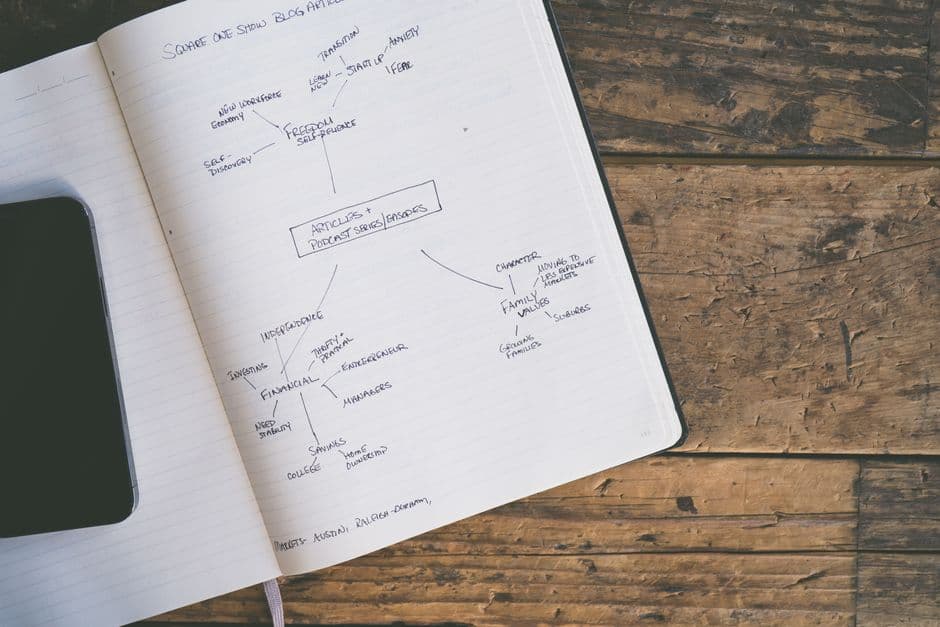 SQUARE ONE SHOW BLOG ARTICL
TRANSITION
ANXIETY
START UP
LEARN
NEW
FEAR
NEW WORKFORCE
ECONOMY
FREEDOM
SELF-RELIENCE
SELF-
DISCOVERY
ARTICLES +
PODCAST SERIES/EPISODES
CHARACTER
MOVING TO
LESS EXPENSIVE
MARKETS
FAMILY
VALUES
SUBURBS
GROWING
FAMILIES
INDEPENDENCE
THRIFTY +
PRATICAL
INVESTING
FINANCIAL
ENTREPRENEUR
MANAGERS
NEED
STABILITY
SAVINGS
COLLEGE
HOME
OWNERSHIP
MARKETS- AUSTIN, RALEIGH-DURHAM,